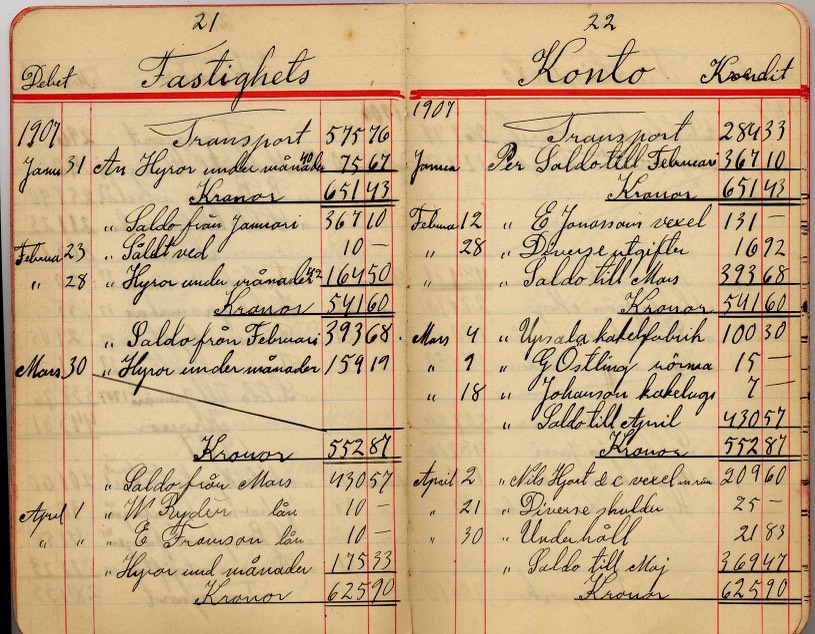 21
Debet Fastighets
1907 Transport 575 76
Janu 31 An Hyror under månader 40 75 67
Kronor 651 43
" Saldo från Januari 367 10
Februa 23 " Såldt ved 10 —
" 28 " Hyror under månader 42 164 50
Kronor 541 60
" Saldo från Februari 393 68
Mars 30 " Hyror under månader 159 19
Kronor 552 87
" Saldo från Mars 430 57
April 1 " W Ryder lån 10 —
" " " E Framson lån 10 —
" Hyror und månader 175 33
Kronor 625 90
22
Konto Kredit
1907
Transport 284 33
Janua Per Saldo till Februari 367 10
Kronor 651 43
Februa 12 " E Jonassoin vexel 131 —
" 28 " Diverse utgifter 16 92
" " Saldo till Mars 393 68
Kronor 541 60
Mars 4 " Upsala kakelfabrik 100 30
" 9 " G Östling 15 —
" 18 " Johanson kakelugs 7 —
" Saldo till April 430 57
Kronor 552 87
April 2 " Nils Hjort & c vexel 209 60
" 21 " Diverse skulder 25 —
" 30 " Underhåll 21 83
" Saldo till Maj 369 47
Kronor 625 90